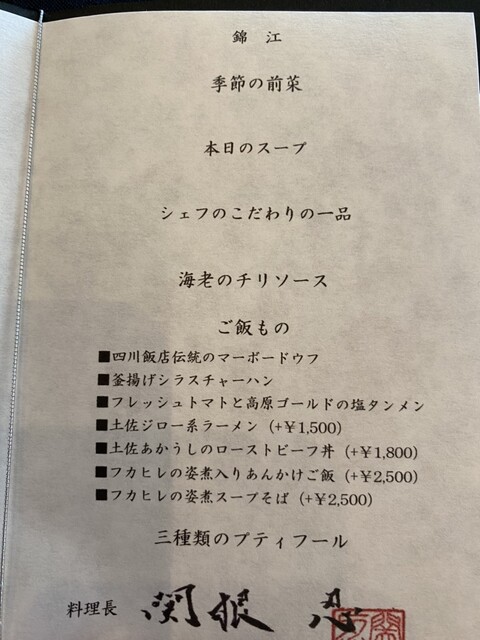 錦 江
季節の前菜
本日のスープ
シェフのこだわりの一品
海老のチリソース
ご飯もの
■四川飯店伝統のマーボードウフ
■釜揚げシラスチャーハン
■フレッシュトマトと高原ゴールドの塩タンメン
■土佐ジロー系ラーメン (+￥1,500)
■土佐あかうしのローストビーフ丼 (+￥1,800)
■フカヒレの姿煮入りあんかけご飯 (+￥2,500)
■フカヒレの姿煮スープそば (+￥2,500)
三種類のプティフール
料理長 関根 忍